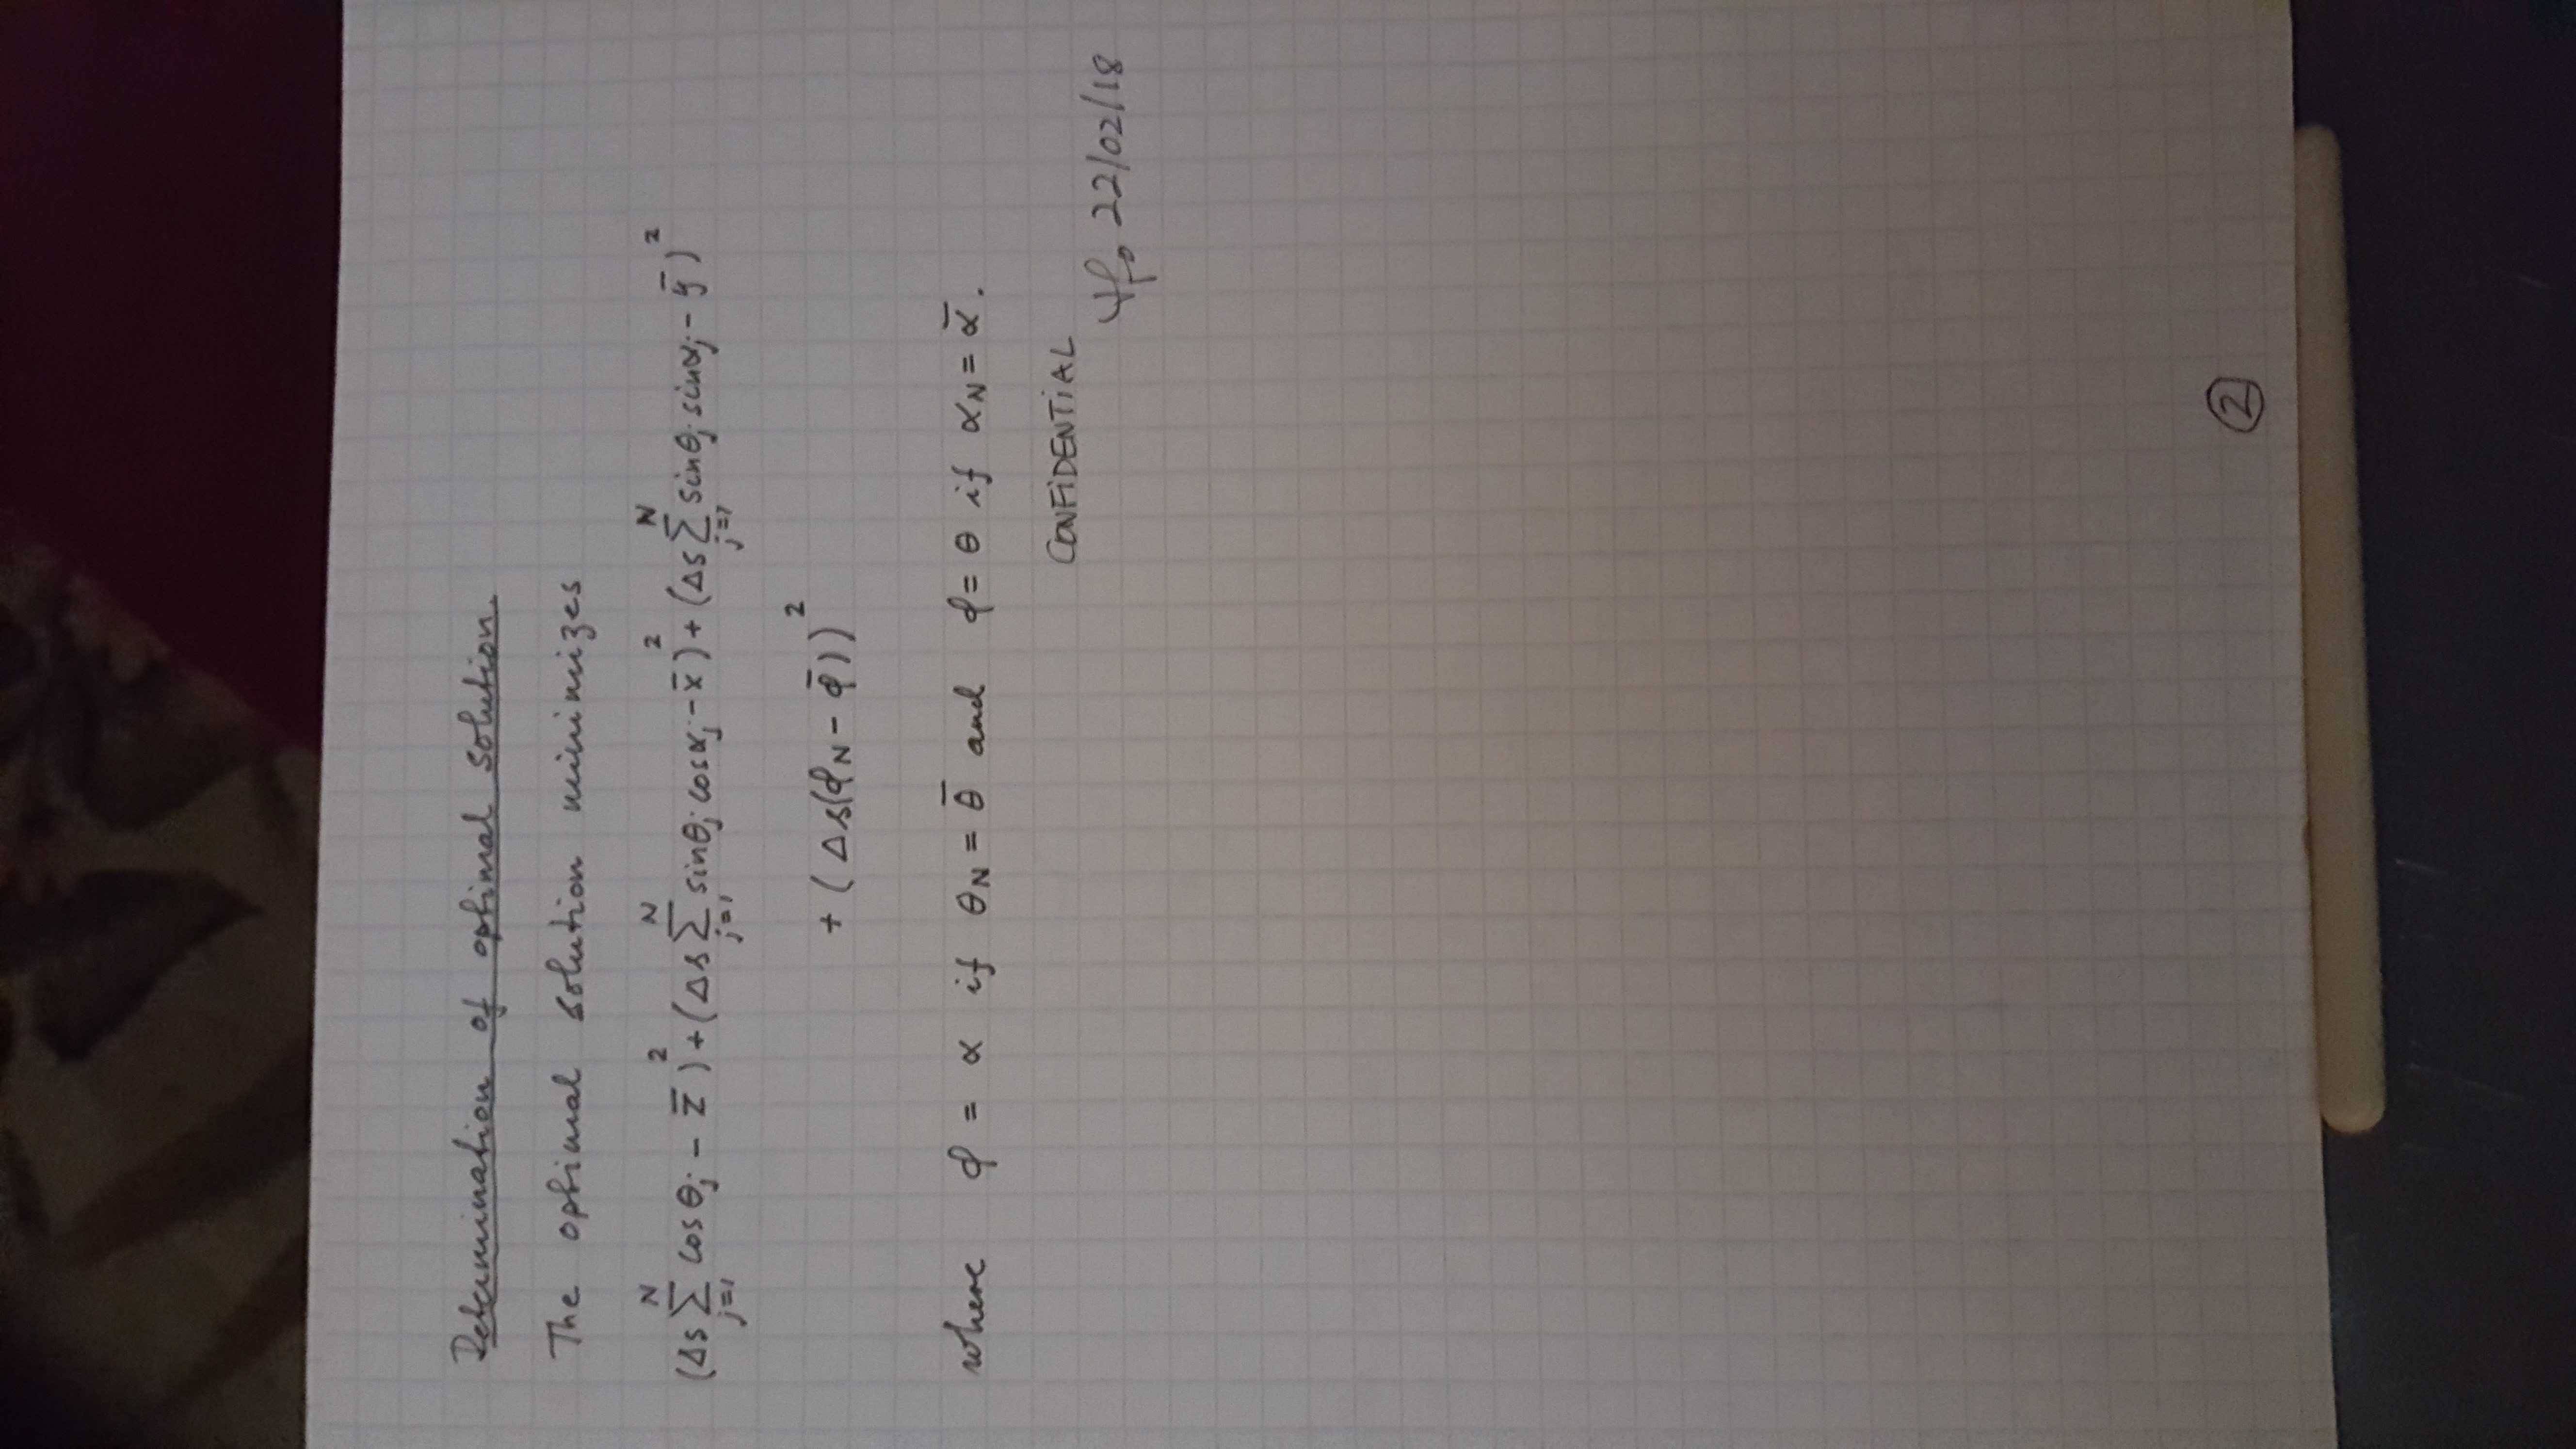 Determination of optimal solution.
The optimal solution minimizes
(Δs ∑_{j=1}^{N} cos θ_j − z̄)² + (Δs ∑_{j=1}^{N} sin θ_j cos α_j − x̄)² + (Δs ∑_{j=1}^{N} sin θ_j sin α_j − ȳ)²
+ (Δs(ϕ_N − ϕ̄))²
where ϕ = α if θ_N = θ̄ and ϕ = θ if α_N = ᾱ.
CONFiDENTiAL
22/02/18
2